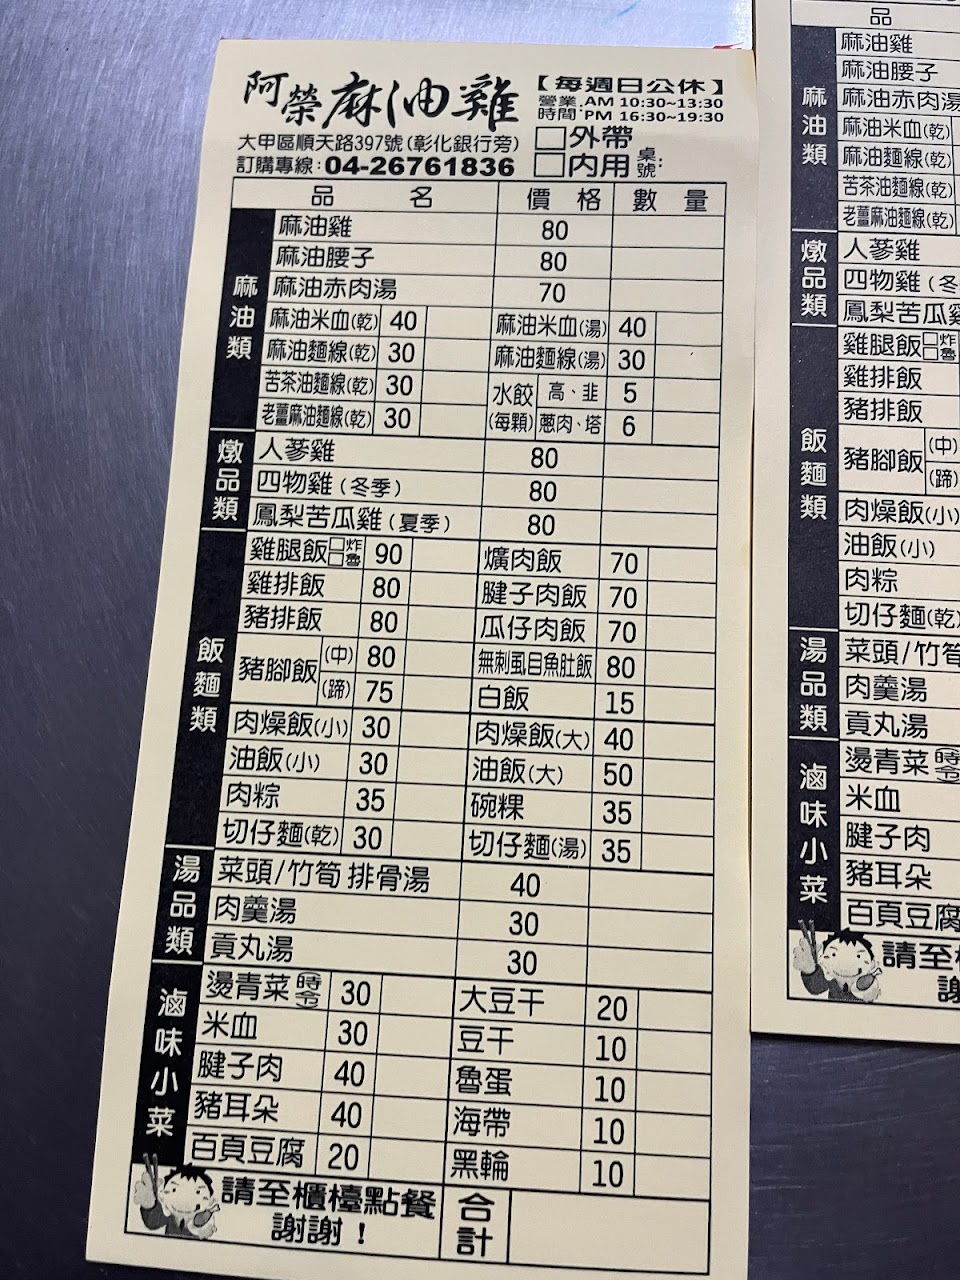 阿榮麻油雞
【每週日公休】
營業時間:AM 10:30~13:30
PM 16:30~19:30
大甲區順天路397號(彰化銀行旁)
訂購專線:04-26761836
□外帶
□內用 桌號:
品名 價格 數量
麻油類
麻油雞 80
麻油腰子 80
麻油赤肉湯 70
麻油米血(乾) 40 麻油米血(湯) 40
麻油麵線(乾) 30 麻油麵線(湯) 30
苦茶油麵線(乾) 30 水餃(每顆) 高、韭 5
老薑麻油麵線(乾) 30 蔥肉、塔 6
燉品類
人蔘雞 80
四物雞(冬季) 80
鳳梨苦瓜雞(夏季) 80
飯麵類
雞腿飯 □炸 □魯 90 爌肉飯 70
雞排飯 80 腱子肉飯 70
豬排飯 80 瓜仔肉飯 70
豬腳飯 (中) 80 無刺虱目魚肚飯 80
(蹄) 75 白飯 15
肉燥飯(小) 30 肉燥飯(大) 40
油飯(小) 30 油飯(大) 50
肉粽 35 碗粿 35
切仔麵(乾) 30 切仔麵(湯) 35
湯品類
菜頭/竹筍 排骨湯 40
肉羹湯 30
貢丸湯 30
滷味小菜
燙青菜 時令 30 大豆干 20
米血 30 豆干 10
腱子肉 40 魯蛋 10
豬耳朵 40 海帶 10
百頁豆腐 20 黑輪 10
請至櫃檯點餐
謝謝！
合計
品
麻油類
麻油雞
麻油腰子
麻油赤肉湯
麻油米血(乾)
麻油麵線(乾)
苦茶油麵線(乾)
老薑麻油麵線(乾)
燉品類
人蔘雞
四物雞(冬
鳳梨苦瓜雞
飯麵類
雞腿飯 □炸 □魯
雞排飯
豬排飯
豬腳飯 (中)
(蹄)
肉燥飯(小)
油飯(小)
肉粽
切仔麵(乾)
湯品類
菜頭/竹筍
肉羹湯
貢丸湯
滷味小菜
燙青菜 時令
米血
腱子肉
豬耳朵
百頁豆腐
請至櫃
謝